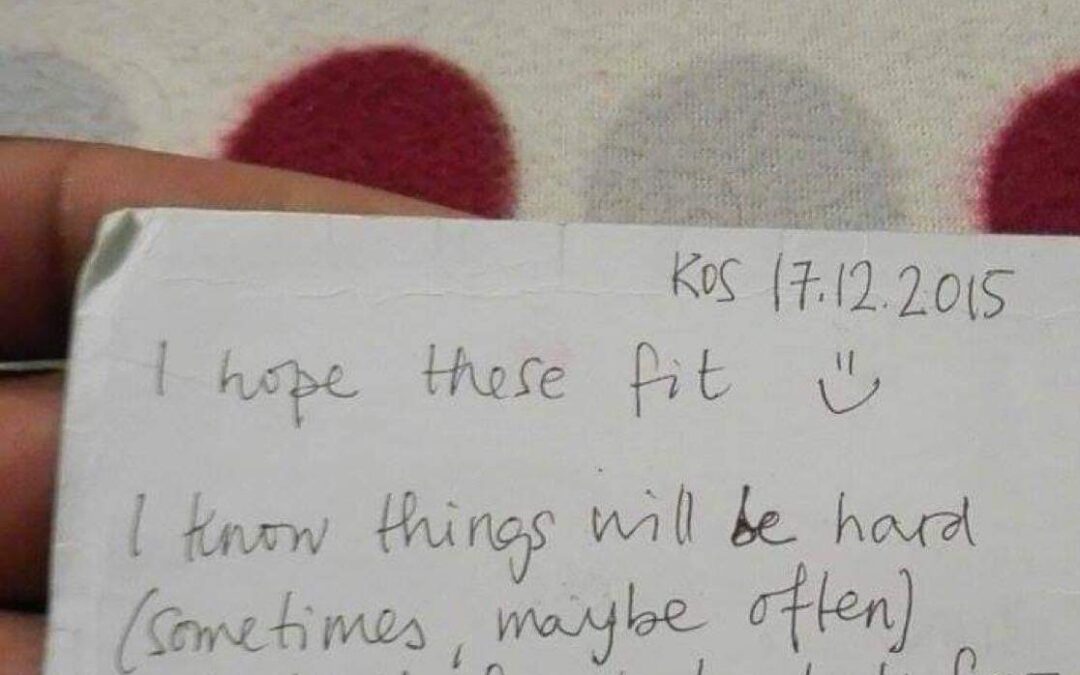 KOS 17.12.2015
I hope these fit
I know things will be hard
(sometimes, maybe often)